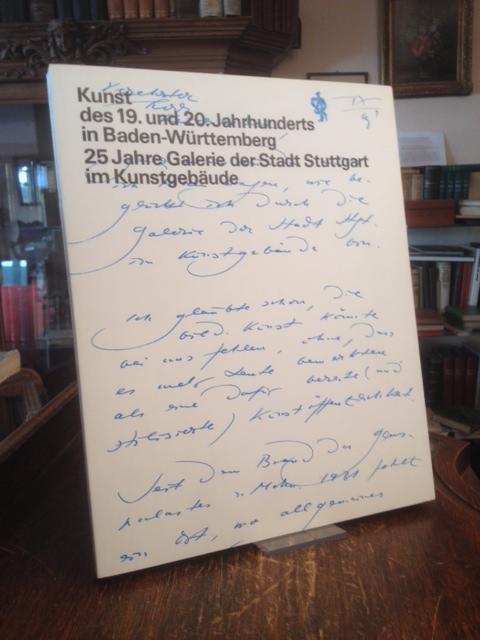 Kunst
des 19. und 20. Jahrhunderts
in Baden-Württemberg
25 Jahre Galerie der Stadt Stuttgart
im Kunstgebäude
wie be-
glückt ich durch die
Galerie der Stadt Stgt.
im Kunstgebäude bin.
Ich glaubte schon, die
bild. Kunst könnte
bei uns fehlen, ohne, dass
es mehr Leute bemerkten
als eine dafür bereite (und
stilisierte) Kunstöffentlichkeit.
Seit dem Brand des
1931 fehlt
ein Ort, wo allgemeines